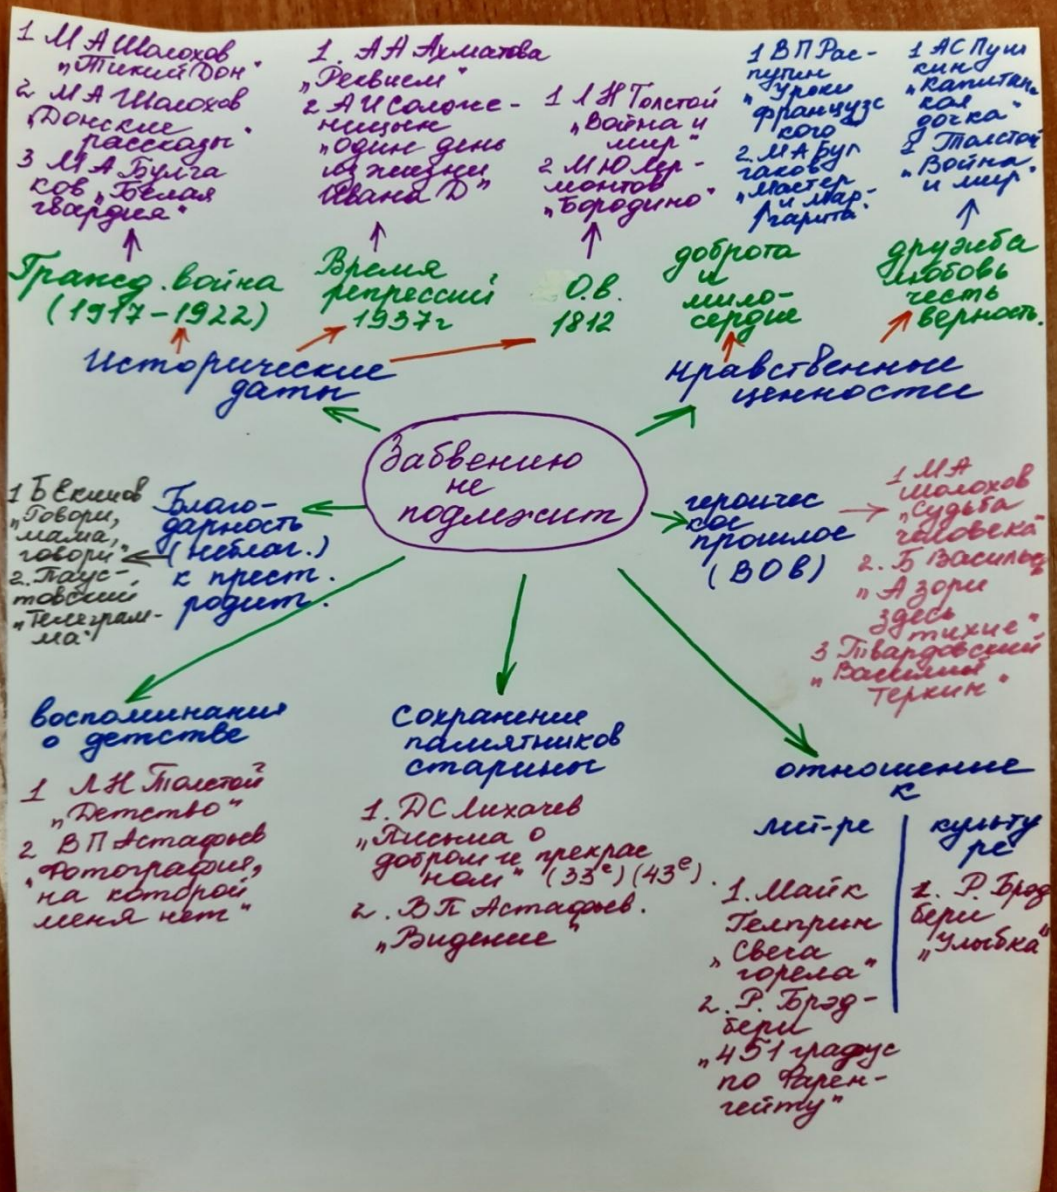 1 М А Шолохов
„Тихий Дон"
2 М А Шолохов
„Донские
рассказы"
3 М А Булга
ков „Белая
гвардия"
1. А А Ахматова
„Реквием"
2 А И Солже-
ницын
„один день
из жизни
Ивана Д"
1 Л Н Толстой
„Война и
мир"
2 М Ю Лер-
монтов
„Бородино"
1 В П Рас-
путин
„Уроки
французс
кого"
2. М А Бул
гаков
„Мастер
и Мар-
гарита"
1 А С Пуш
кин
„Капитан
ская
дочка"
2 Толстой
„Война
и мир"
Гражд. война
(1917-1922)
Время
репрессий
1937г
О.В.
1812
доброта
и
мило-
сердие
дружба
любовь
честь
верность.
Исторические
даты
Нравственные
ценности
Забвению
не
подлежит
Благо-
дарность
(неблаг.)
к прест.
родит.
1 Б Екимов
„Говори,
мама,
говори"
2. Паус-
товский
„Телеграм-
ма"
героичес
кое
прошлое
(ВОВ)
1 М А
Шолохов
„Судьба
человека"
2. Б Васильев
„А зори
здесь
тихие"
3 Твардовский
„Василий
Теркин"
воспоминания
о детстве
1 Л Н Толстой
„Детство"
2 В П Астафьев
„Фотография,
на которой
меня нет"
Сохранение
памятников
старины
1. Д С Лихачев
„Письма о
добром и прекрас
ном" (33е) (43е).
2. В П Астафьев.
„Видение"
отношение
к
лит-ре
культу
ре
1. Майк
Гелприн
„Свеча
горела"
2. Р. Брэд-
бери
„451 градус
по Фарен-
гейту"
1. Р. Брэд
бери
„Улыбка"